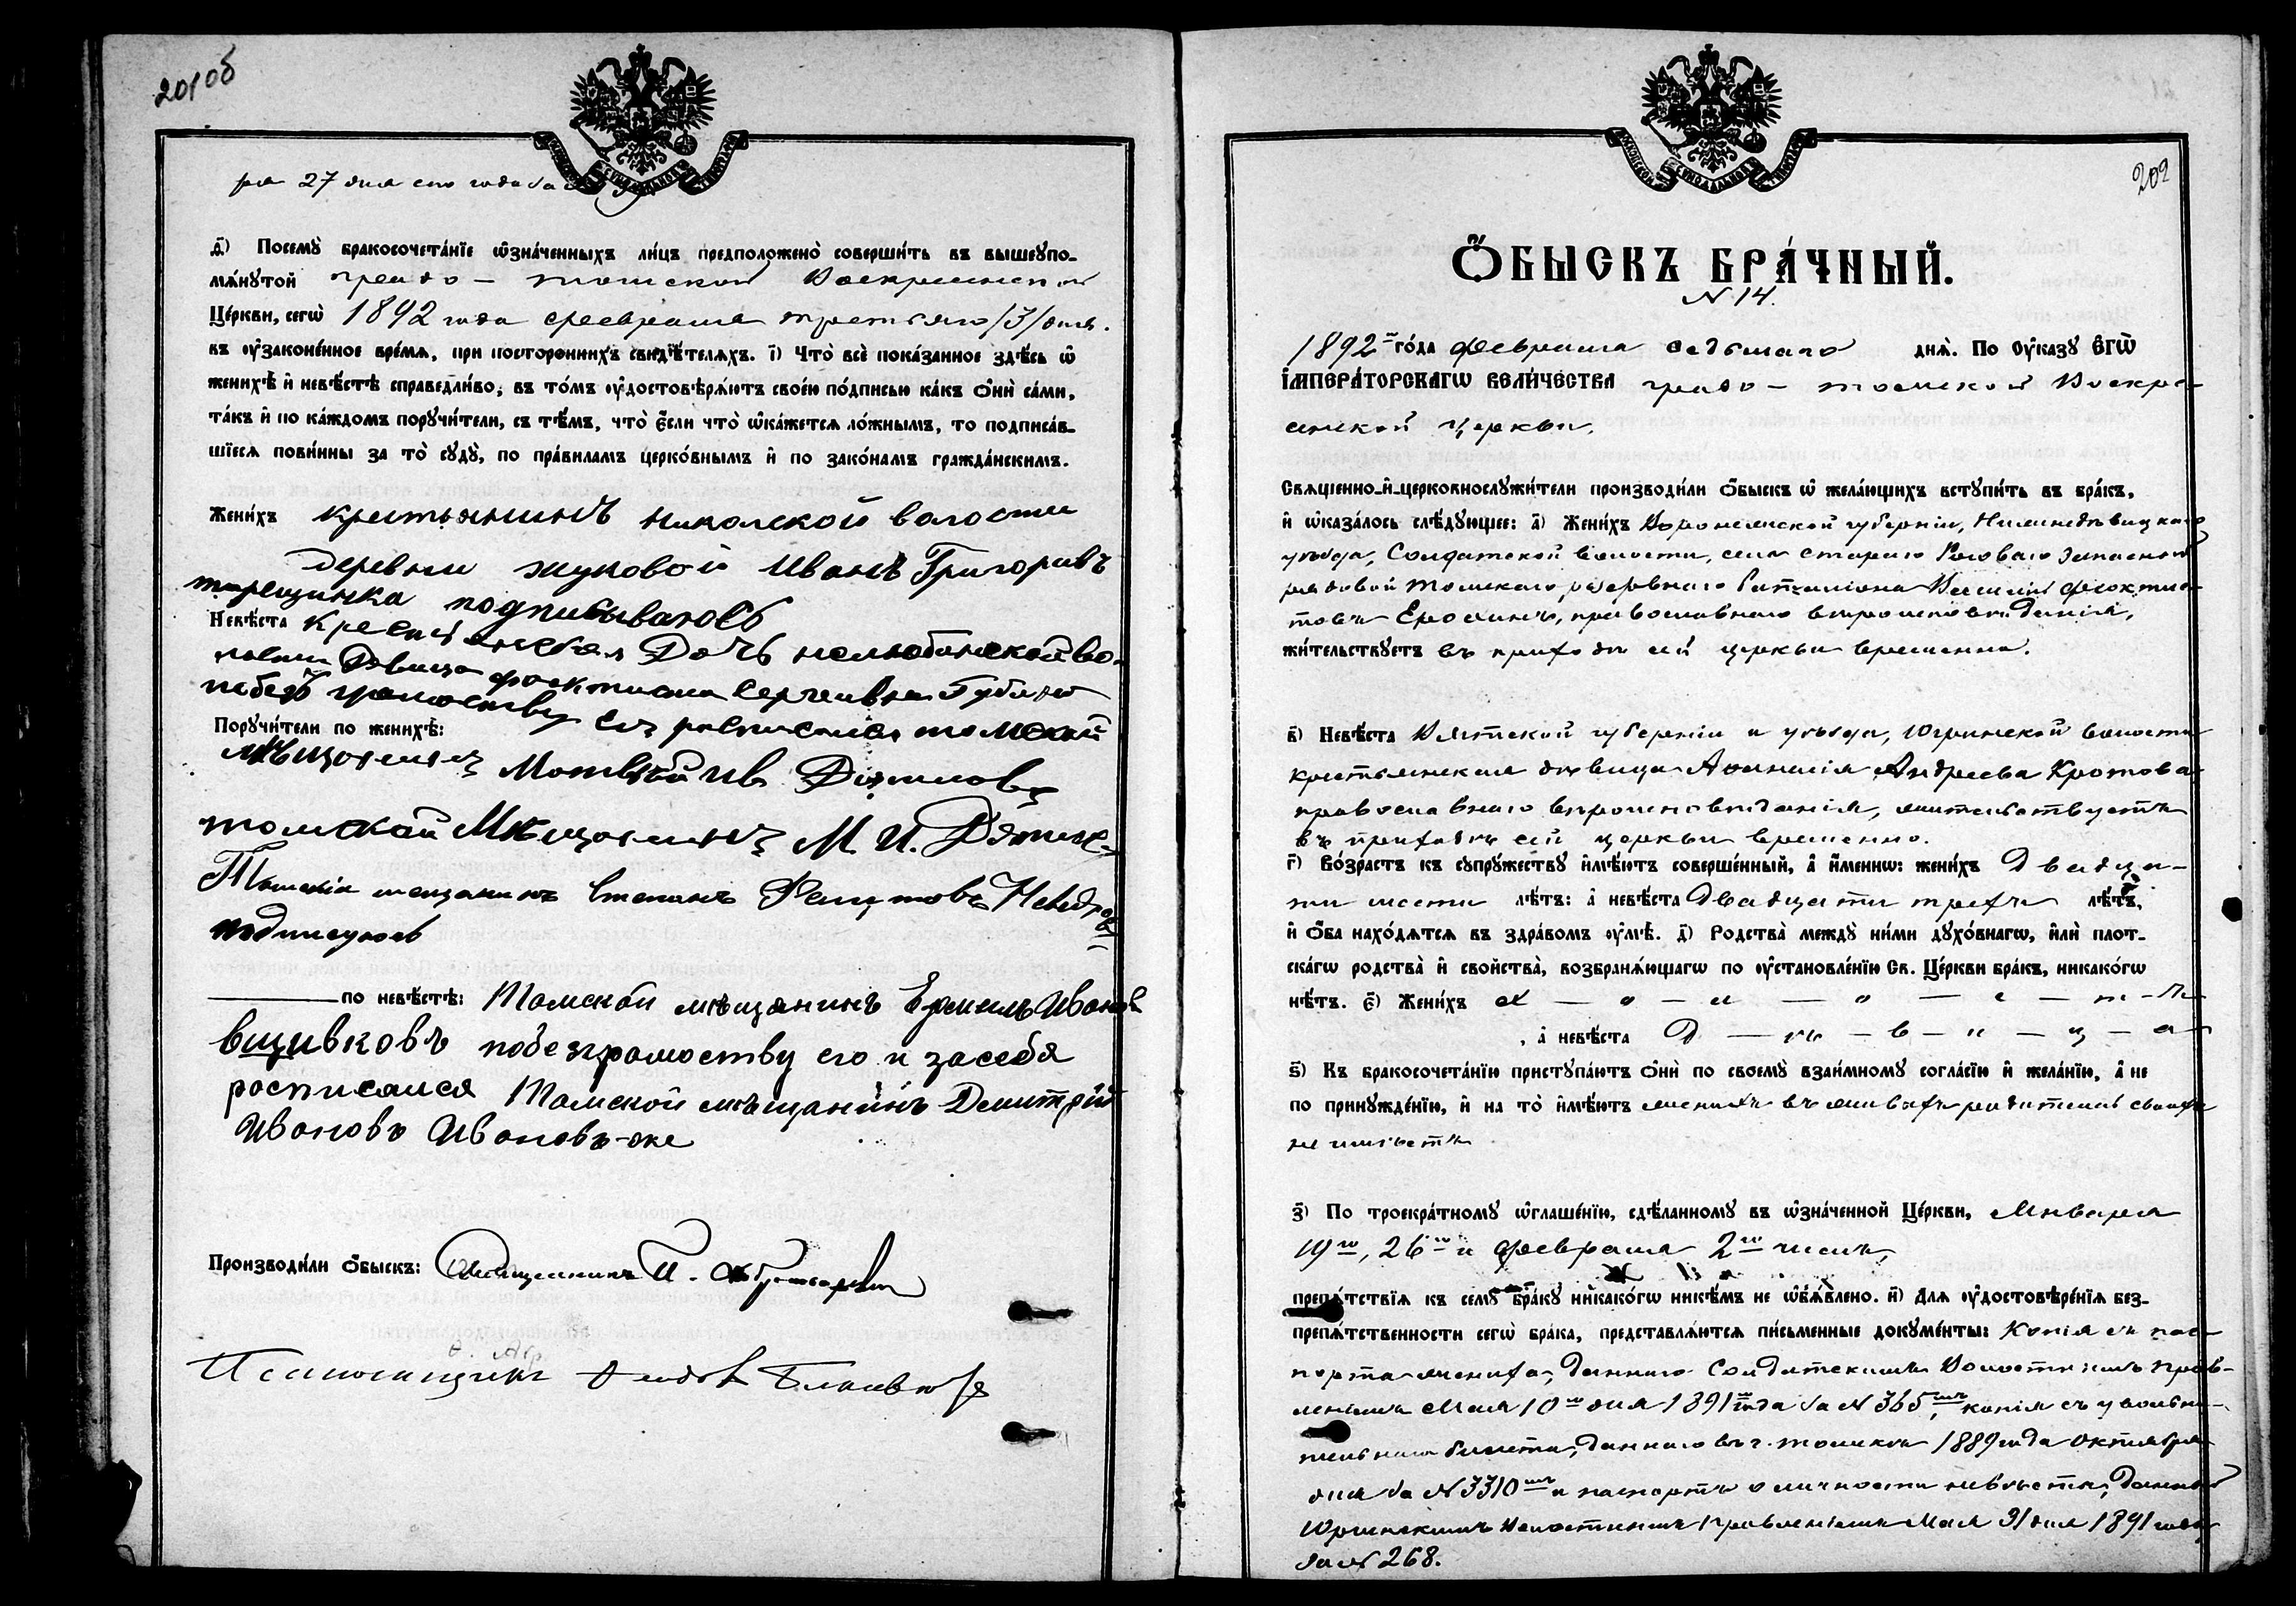 201об
ря 27 дня сего года за №
д҃) Посемꙋ̀ бракосочета́нїе ѡ҆зна́ченныхъ ли́цъ предположено̀ соверши́ть въ вышеꙋпо-
мѧ́нꙋтой градо - томской Воскресенской
Це́ркви, сегѡ̀ 1892 года февраля третьяго /3/ дня.
въ ᲂу҆законе́нное вре́мѧ, при посторо́ннихъ свидѣ́телѧхъ. і҃) Что̀ всѐ пока́занное здѣ́сь ѡ҆
женихѣ̀ и҆ невѣ́стѣ справедли́во, въ то́мъ ᲂу҆достовѣрѧ́ютъ свое́ю по́дписью ка́къ ѻ҆нѝ са́ми,
та́къ и҆ по ка́ждомъ порꙋчи́тели, съ тѣ́мъ, что̀ є҆́сли что̀ ѡ҆ка́жетсѧ ло́жнымъ, то подписа́в-
шїесѧ пови́нны за то̀ сꙋдꙋ̀, по пра́виламъ церко́внымъ и҆ по зако́намъ гражда́нскимъ.
Жени́хъ крестьянинъ николской волости
деревни жуковой Иванъ Григоривъ
терещинка подписываюсь
Невѣ́ста крестьянская Дочь нелюбинской во-
лости Девица феоктиста Сергеивна Губина
по без грамоству ея росписался томской
Порꙋчи́тели по женихѣ̀:
мѣщанинъ Матвѣй Ив Дятлов
томской Мѣщанинъ М. И. Дятлов
Томскiй мещанинъ Степанъ
подписуюсь
по невѣ́стѣ: Томской мѣщанинъ Ермилъ Иванов
вшивковъ побезграмоству его и засебя
росписался Томской мѣщанинъ Дмитрiй
Ивановъ Ивановъ-же
Производи́ли ѻ҆́быскъ: Священникъ
Псаломщикъ
202
Ѻ҆́БЫСКЪ БРА́ЧНЫЙ.
N 14.
1892го го́да февраля седьмаго днѧ̀. По Оу҆ка́зꙋ Є҆гѡ̀
І҆мпера́торскагѡ Вели́чества градо - томской Воскре-
сенской церкви,
Свѧще́нно-и҆-церковнослꙋжи́тели производи́ли ѻ҆́быскъ ѡ҆ жела́ющихъ встꙋпи́ть въ бра́къ,
и҆ ѡ҆каза́лось слѣ́дꙋющее: а҃) Жени́хъ Воронежской губернiи, Нижнедѣвицкаго
уѣзда, Солдатской волости, села стараго Роговаго запасный
рядовой томскаго резервнаго баталiона Василiй Феоктис-
товъ Ерохинъ, православнаго вѣроисповѣданiя,
жи́тельствꙋетъ въ приходѣ сей церкви временно.
в҃) Невѣ́ста Вятской губернiи и уѣзда, Югринской волости
крестьянская дѣвица Афанасiя Андреева Кротова
православнаго вѣроисповѣданiя, жительствуетъ
въ приходѣ сей церкви временно.
г҃) Во́зрастъ къ сꙋпрꙋ́жествꙋ и҆мѣ́ютъ соверше́нный, а҆ и҆́меннѡ: жени́хъ Двадца-
ти шести лѣ́тъ: а҆ невѣ́ста двадцати трехъ лѣ́тъ,
и҆ ѻ҆́ба нахо́дѧтсѧ въ здра́вомъ ᲂу҆мѣ̀. д҃) Родства̀ междꙋ̀ ни́ми дꙋхо́внагѡ, и҆лѝ плот-
ска́гѡ родства̀ и҆ свойства̀, возбранѧ́ющагѡ по ᲂу҆становле́нїю Св. Це́ркви бра́къ, никако́гѡ
нѣ́тъ. є҃) Жени́хъ х - о - л - о - с - т - ъ
, а҆ невѣ́ста д - ѣ - в - и - ц - а
ѕ҃) Къ бракосочета́нїю пристꙋпа́ютъ ѻ҆нѝ по своемꙋ̀ взаи́мномꙋ согла́сїю и҆ жела́нїю, а҆ не
по принꙋжде́нїю, и҆ на то̀ и҆мѣ́ютъ женихъ въ живыхъ родителей своихъ
не имѣетъ
з҃) По троекра́тномꙋ ѡ҆глаше́нїю, сдѣ́ланномꙋ въ ѡ҆зна́ченной Це́ркви, Января
19го, 26го и февраля 2го чиселъ,
препѧ́тствїѧ къ семꙋ̀ бра́кꙋ никако́гѡ никѣ́мъ не ѡ҆б̾ѧ́влено. и҃) Для ᲂу҆достовѣре́нїѧ без-
препѧ́тственности сегѡ̀ бра́ка, представлѧ́ютсѧ пи́сьменные докꙋме́нты: Копiя съ пас-
порта жениха, даннаго Солдатскимъ Волостнымъ прав-
ленiемъ Мая 10го дня 1891 года за N 365мъ, копiя съ увольни-
тельнаго билета, даннаго въ г. томскѣ 1889 года октября
дня за N 3310мъ и паспортъ о личности невѣсты, данный
Югринскимъ Волостнымъ Правленiемъ Мая 31 дня 1891 года
за N 268.